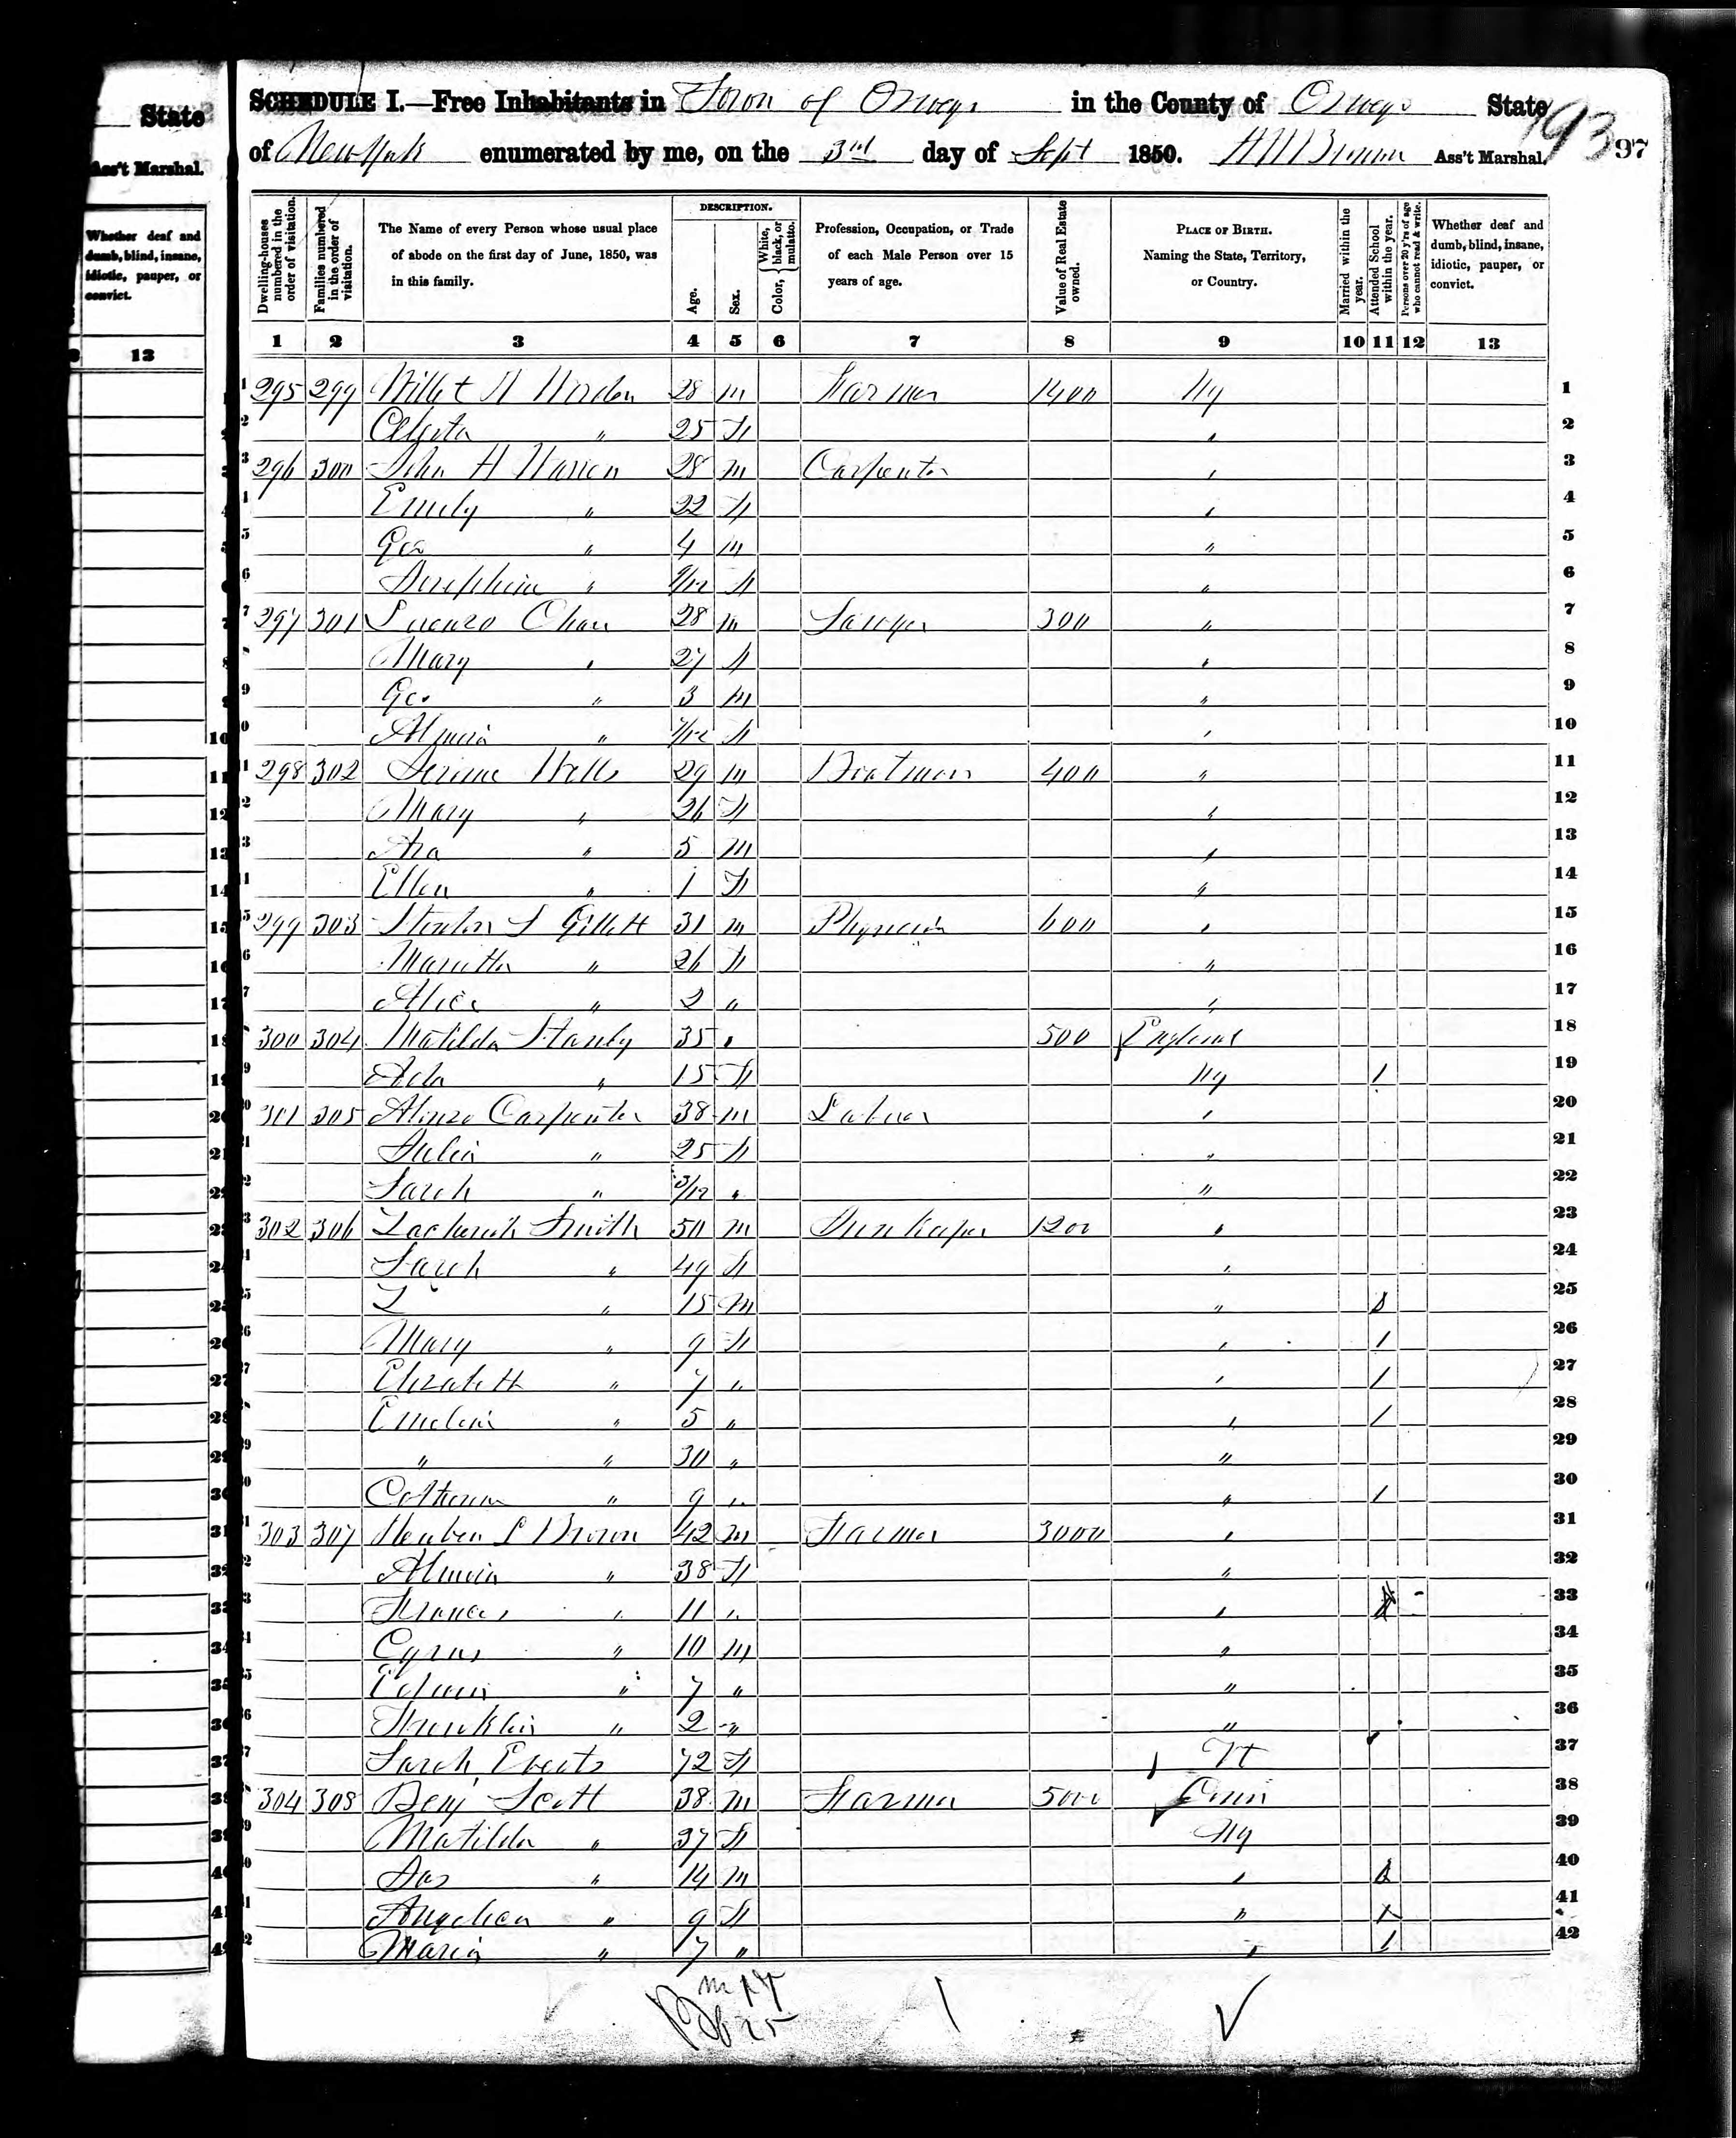 State
Ass't Marshal.
Whether deaf and dumb, blind, insane, idiotic, pauper, or convict.
13
SCHEDULE I.—Free Inhabitants in Town of Oswego in the County of Oswego State
of New York enumerated by me, on the 3rd day of Sept 1850. Ass't Marshal.
193 97
Dwelling-houses numbered in the order of visitation.
Families numbered in the order of visitation.
The Name of every Person whose usual place of abode on the first day of June, 1850, was in this family.
DESCRIPTION.
Age.
Sex.
Color, { White, black, or mulatto.
Profession, Occupation, or Trade of each Male Person over 15 years of age.
Value of Real Estate owned.
PLACE OF BIRTH. Naming the State, Territory, or Country.
Married within the year.
Attended School within the year.
Persons over 20 y'rs of age who cannot read & write.
Whether deaf and dumb, blind, insane, idiotic, pauper, or convict.
1 2 3 4 5 6 7 8 9 10 11 12 13
1 295 299 Willet H Worden 28 m Farmer 1400 Ny 1
2 " 25 F " 2
3 296 300 John H Warren 28 m Carpenter " 3
4 Emily " 22 F " 4
5 Geo " 4 m " 5
6 Josephine " 9/12 F " 6
7 297 301 Lorenzo 28 m Sawyer 300 " 7
8 Mary " 27 F " 8
9 Geo " 3 m " 9
10 Almira " 7/12 F " 10
11 298 302 Jerome Wells 29 m Boatman 400 " 11
12 Mary " 26 F " 12
13 Ira " 5 m " 13
14 Ellen " 1 F " 14
15 299 303 S Gillett 31 m Physician 600 " 15
16 Marietta " 26 F " 16
17 Alice " 2 " " 17
18 300 304 Matilda Stanly 35 " 500 England 18
19 Ada " 15 F Ny 1 19
20 301 305 Alonzo Carpenter 38 m Laborer " 20
21 Julia " 25 F " 21
22 Sarah " 3/12 " " 22
23 302 306 Zachariah Smith 50 m Innkeeper 1200 " 23
24 Sarah " 49 F " 24
25 Z " 15 m " 1 25
26 Mary " 9 F " 1 26
27 Elizabeth " 7 " " 1 27
28 Emeline " 5 " " 1 28
29 " " 30 " " 29
30 Catherine " 9 " " 1 30
31 303 307 Reuben L Brown 42 m Farmer 3000 " 31
32 Almira " 38 F " 32
33 Frances " 11 " " 33
34 Cyrus " 10 m " 34
35 Edwin " 7 " " 35
36 Franklin " 2 " " 36
37 Sarah Everts 72 F Vt 37
38 304 308 Benj Scott 38 m Farmer 5000 Conn 38
39 Matilda " 37 F Ny 39
40 Jas " 14 m " 1 40
41 Angelica " 9 F " 1 41
42 Maria " 7 " " 1 42